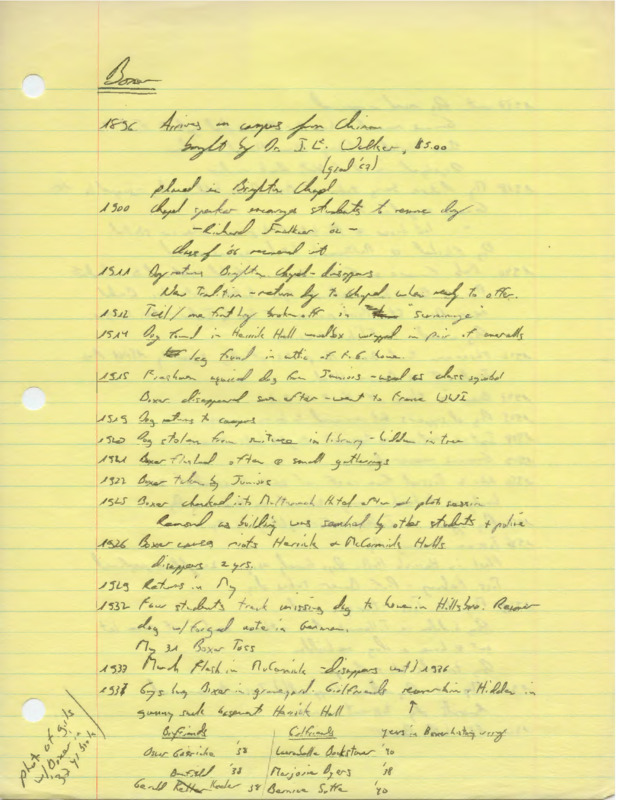 Boxer
1896 Arrives on campus from China
bought by Dr. J. E. Walker, $5.00
(grad '67)
placed in Brighton Chapel
1900 chapel speaker encourages students to remove dog
- Richard Faulkner '02 -
class of '02 removed it
1911 Dog returns Brighton Chapel - disappears
New Tradition - return dog to chapel when ready to offer.
1912 Tail / one front leg broken off in scrimmage
1914 Dog found in Herrick Hall woodbox wrapped in pair of overalls
leg found in attic of home
1915 Freshmen acquired dog from Juniors - used as class symbol
Boxer disappeared soon after - went to France WWI
1919 Dog returns to campus
1920 Dog stolen from suitcase in library - hidden in tree
1921 Boxer flashed often @ small gatherings
1922 Boxer taken by Juniors
1925 Boxer checked into Multnomah Hotel after photo session
Removed as building was searched by other students + police
1926 Boxer causes riots Herrick + McCormick Halls
disappears 2 yrs.
1929 Returns in May
1932 Four students track missing dog to home in Hillsboro. Recover
dog w/ forged note in German.
May 21 Boxer Toss
1933 March Flash in McCormick - disappears until 1936
1937 Guys bury Boxer in graveyard. Girlfriends + Hidden in
gunny sack basement Herrick Hall ↑
Boyfriends Girlfriends years in Boxer history wrong
'38 '40
'38 Marjorie '38
'38 Bernice '40
photo of girls
w/ Boxer in